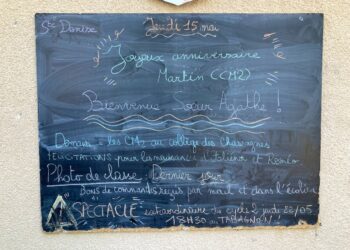 Ste Denise
Jeudi 15 mai
Joyeux anniversaire
Martin (CM2)
Bienvenue Sœur Agathe !
Demain : les CM2 au collège des Chavagnes
FÉLICITATIONS pour la naissance d'
et Roméo
Photo de classe : Dernier jour
Bons de commande reçus par mail et dans l'école
SPECTACLE extraordinaire du cycle 2 jeudi 22/05
18H30